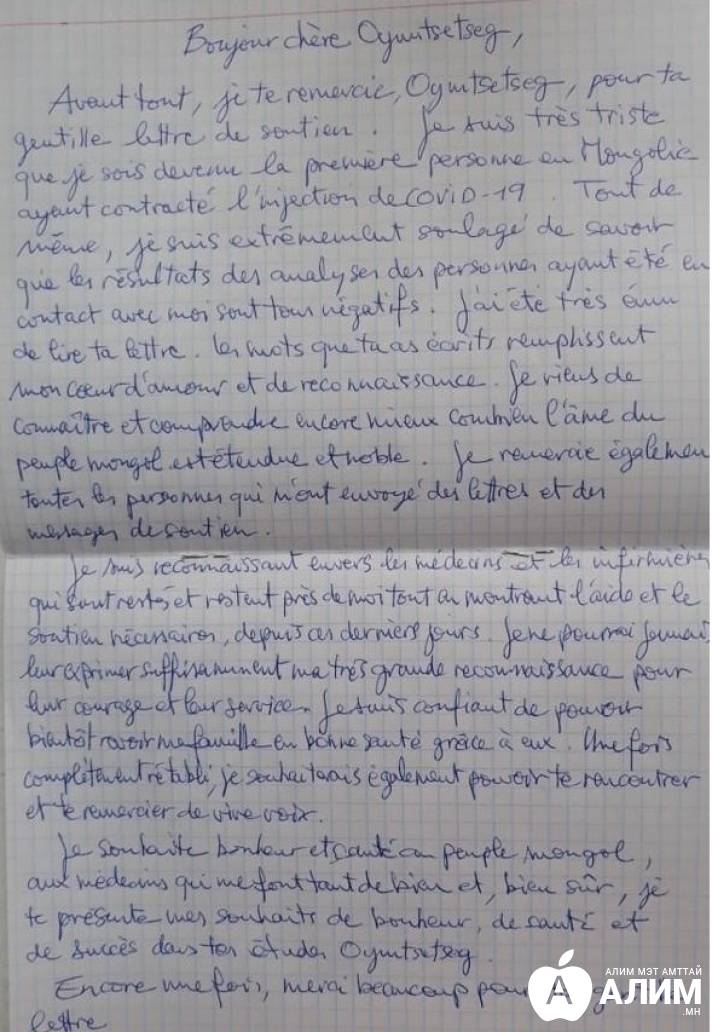 Bonjour chère Oyuntsetseg,
Avant tout, je te remercie, Oyuntsetseg, pour ta
gentille lettre de soutien. Je suis très triste
que je sois devenu la première personne en Mongolie
ayant contracté l'injection de COVID-19. Tout de
même, je suis extrêmement soulagé de savoir
que les résultats des analyses des personnes ayant été en
contact avec moi sont tous négatifs. J'ai été très ému
de lire ta lettre. Les mots que tu as écrits remplissent
mon cœur d'amour et de reconnaissance. Je viens de
connaître et comprendre encore mieux combien l'âme du
peuple mongol est étendue et noble. Je remercie également
toutes les personnes qui m'ont envoyé des lettres et des
messages de soutien.
Je suis reconnaissant envers les médecins et les infirmières
qui sont restés et restent près de moi tout en montrant l'aide et le
soutien nécessaires, depuis ces derniers jours. Je ne pourrai jamais
leur exprimer suffisamment ma très grande reconnaissance pour
leur courage et leur service. Je suis confiant de pouvoir
bientôt revoir ma famille en bonne santé grâce à eux. Une fois
complètement rétabli, je souhaiterais également pouvoir te rencontrer
et te remercier de vive voix.
Je souhaite bonheur et santé au peuple mongol,
aux médecins qui me font tant de bien et, bien sûr, je
te présente mes souhaits de bonheur, de santé et
de succès dans tes études Oyuntsetseg.
Encore une fois, merci beaucoup pour
lettre
АЛИМ МЭТ АМТТАЙ
АЛИМ
.МН